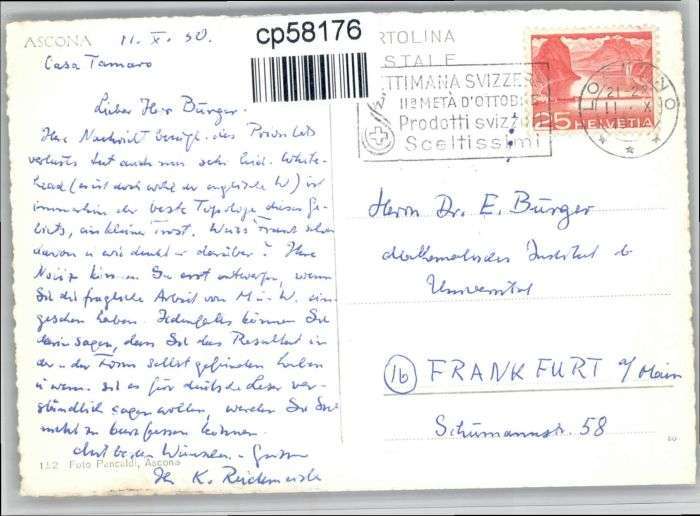 ASCONA
11. X. 50.
cp58176
RTOLINA
STALE
Casa Tamaro
TTIMANA SVIZZERA
IIª METÀ D'OTTOB
Prodotti svizz
Sceltissimi
25 HELVETIA
Lieber Herr Burger.
Ihre Nachricht bezügl. des
verlustes tut auch uns sehr leid. White-
head (es ist doch wohl der englische W) ist
immerhin der beste Topologe dieses Ge-
biets, ein kleiner Trost. Weiss Franz schon
davon u wie denkt er darüber? Ihre
Notiz können Sie erst entwerfen, wenn
Sie die fragliche Arbeit von W. ein-
gesehen haben. Jedenfalls können Sie
darin sagen, dass Sie das Resultat in
der Form selbst gefunden haben
u wenn Sie es für deutsche Leser ver-
ständlich sagen wollen, werden Sie Sich
nicht zu kurz fassen können.
Mit besten Wünschen u Grüssen
Ihr K. Reidemeister
Herrn Dr. E. Burger
Mathematisches Institut d
Universität
(16) FRANKFURT a/Main
Schumannstr. 58
112 Foto Pancaldi, Ascona